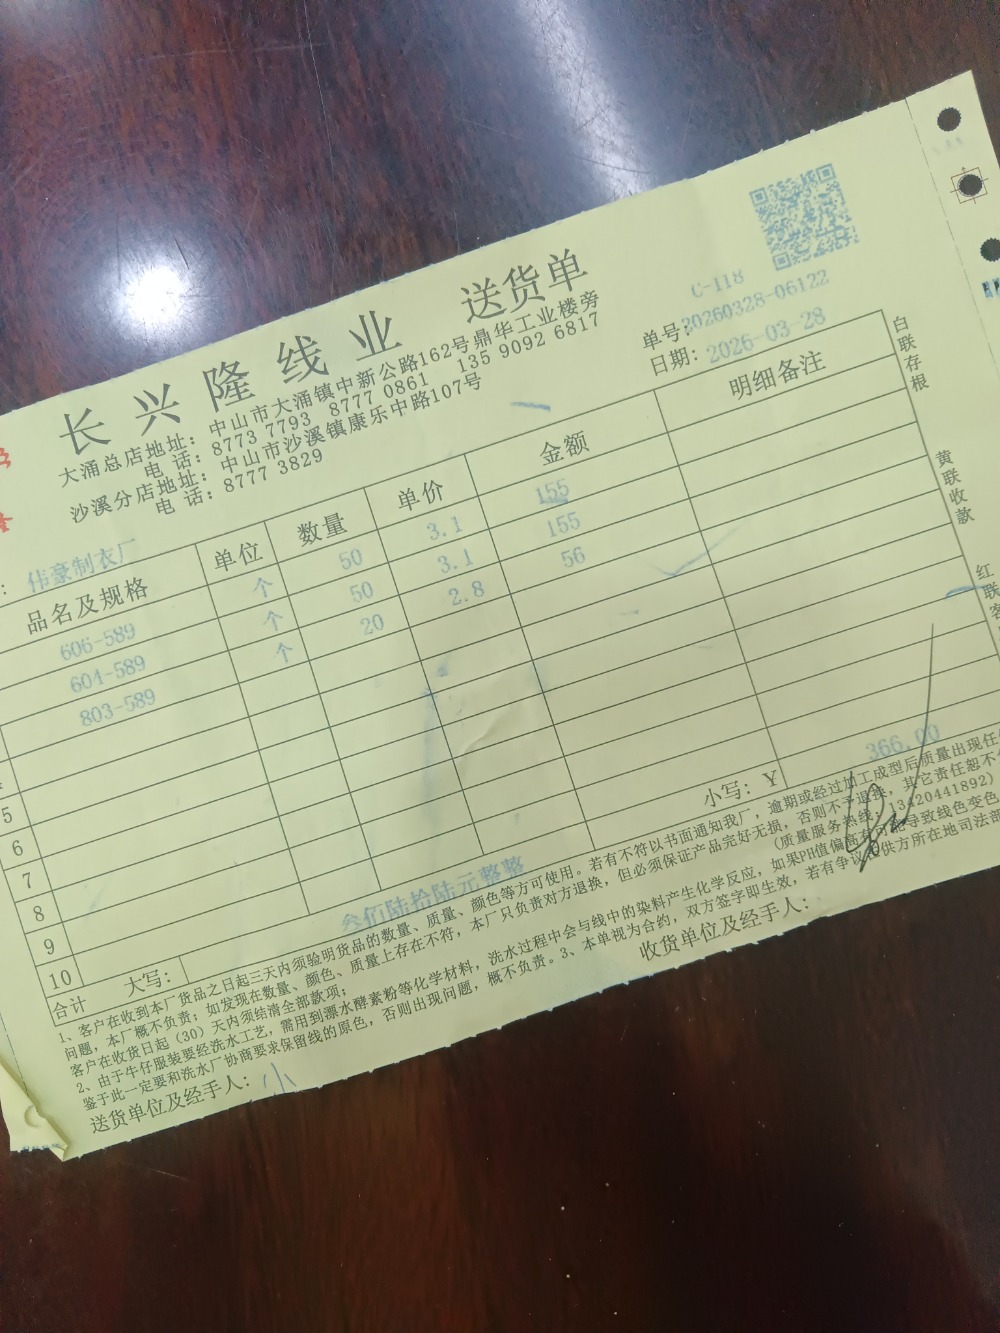 长兴隆线业 送货单
大涌总店地址：中山市大涌镇中新公路162号鼎华工业楼旁
电 话：8773 7793 8777 0861 135 9092 6817
沙溪分店地址：中山市沙溪镇康乐中路107号
电 话：8777 3829
C-118
单号：20260328-06122
日期：2026-03-28
：伟豪制衣厂
品名及规格 单位 数量 单价 金额 明细备注
606-589 个 50 3.1 155
604-589 个 50 3.1 155
803-589 个 20 2.8 56
5
6
7
8
9
10
合计 大写：叁佰陆拾陆元整整 小写：¥ 366.00
1、客户在收到本厂货品之日起三天内须验明货品的数量、质量、颜色等方可使用。若有不符以书面通知我厂，逾期或经过加工成型后质量出现任
问题，本厂概不负责；如发现在数量、颜色、质量上存在不符，本厂只负责对方退换，但必须保证产品完好无损，否则不予退换，其它责任恕不
客户在收货日起（30）天内须结清全部款项； （质量服务热线：13420441892）
2、由于牛仔服装要经洗水工艺，需用到漂水酵素粉等化学材料，洗水过程中会与线中的染料产生化学反应，如果PH值偏高有可能导致线色变色
鉴于此一定要和洗水厂协商要求保留线的原色，否则出现问题，概不负责。3、本单视为合约，双方签字即生效，若有争议 供方所在地司法部
送货单位及经手人：小 收货单位及经手人：
白联存根
黄联收款
红联客